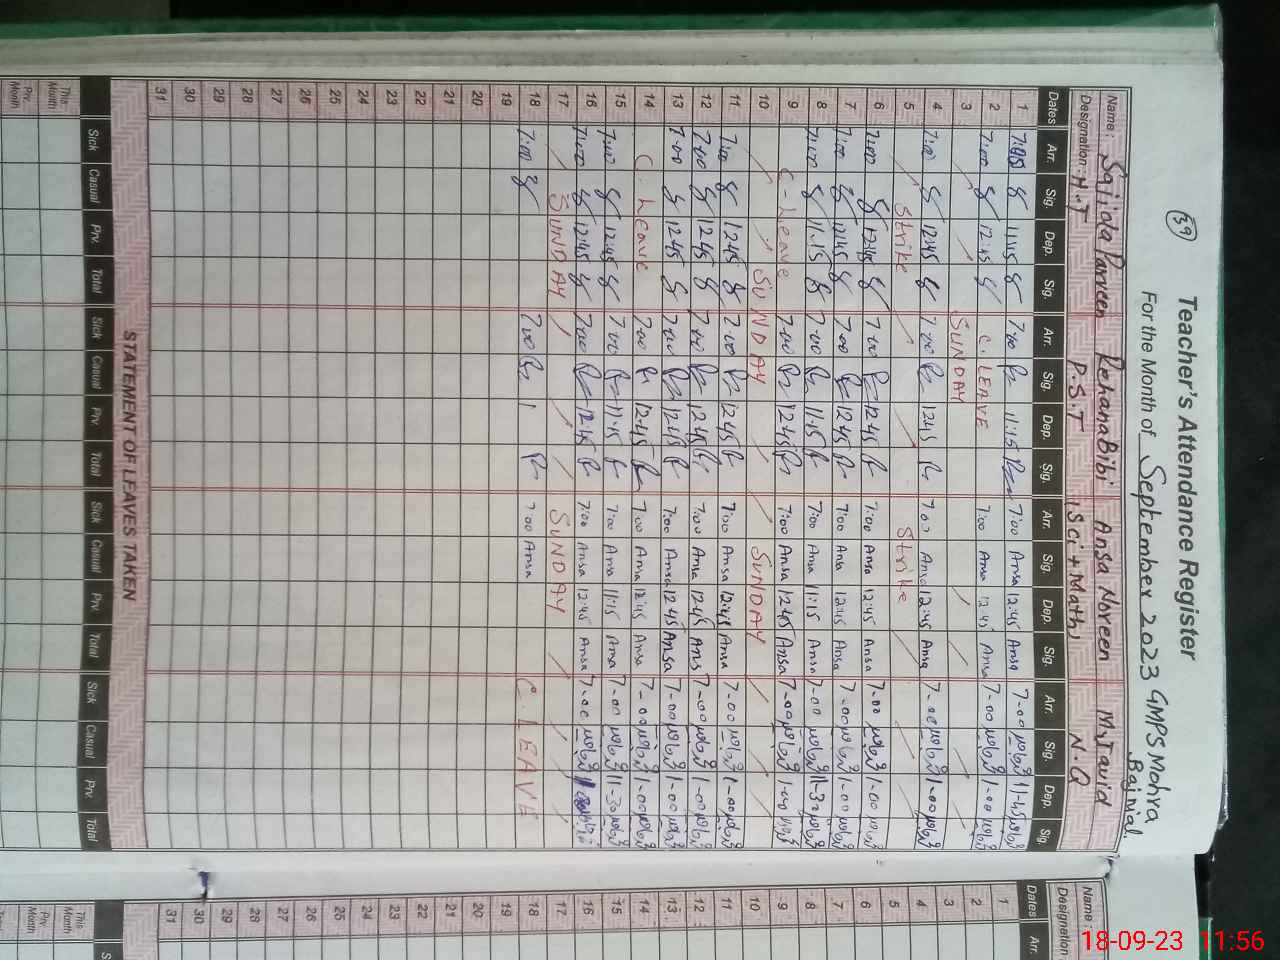 39
Teacher's Attendance Register
For the Month of September 2023 GMPS Mohra
Bajnial
Name: Sajida Parveen Rehana Bibi Ansa Noreen M. Javid
Designation: H.T P.S.T (Sci + Math) N.Q
Dates Arr. Sig. Dep. Sig. Arr. Sig. Dep. Sig. Arr. Sig. Dep. Sig. Arr. Sig. Dep. Sig.
1 11:45 7:00 11:15 7:00 Ansa 12:45 Ansa 7-00 11-45
2 7:00 12:45 C. LEAVE 7:00 Ansa 12:45 Ansa 7-00 1-00
3 SUNDAY
4 7:00 12:45 7:00 12:45 7:00 Ansa 12:45 Ansa 7-00 1-00
5 Strike Strike
6 7:00 12:45 7:00 12:45 7:00 Ansa 12:45 Ansa 7-00 1-00
7 7:00 12:45 7:00 12:45 7:00 Ansa 12:45 Ansa 7-00 1-00
8 7:00 11:15 7:00 11:15 7:00 Ansa 11:15 Ansa 7-00 11-30
9 C-Leave 7:00 12:45 7:00 Ansa 12:45 Ansa 7-00 1-00
10 SUNDAY SUNDAY
11 7:00 12:45 7:00 12:45 7:00 Ansa 12:45 Ansa 7-00 1-00
12 7:00 12:45 7:00 12:45 7:00 Ansa 12:45 Ansa 7-00 1-00
13 7:00 12:45 7:00 12:45 7:00 Ansa 12:45 Ansa 7-00 1-00
14 C. Leave 7:00 12:45 7:00 Ansa 12:45 Ansa 7-00 1-00
15 7:00 12:45 7:00 11:15 7:00 Ansa 11:15 Ansa 7-00 11-30
16 7:00 12:45 7:00 12:45 7:00 Ansa 12:45 Ansa 7-00
17 SUNDAY SUNDAY
18 7:00 7:00 7:00 Ansa C. LEAVE
19
20
21
22
23
24
25
26
27
28
29
30
31
STATEMENT OF LEAVES TAKEN
Sick Casual Prv. Total Sick Casual Prv. Total Sick Casual Prv. Total Sick Casual Prv Total
This Month
Prv. Month
Name:
Designation
Dates Arr.
1
2
3
4
5
6
7
8
9
10
11
12
13
14
15
16
17
18
19
20
21
22
23
24
25
26
27
28
29
30
31
This Month
Prv. Month
18-09-23 11:56